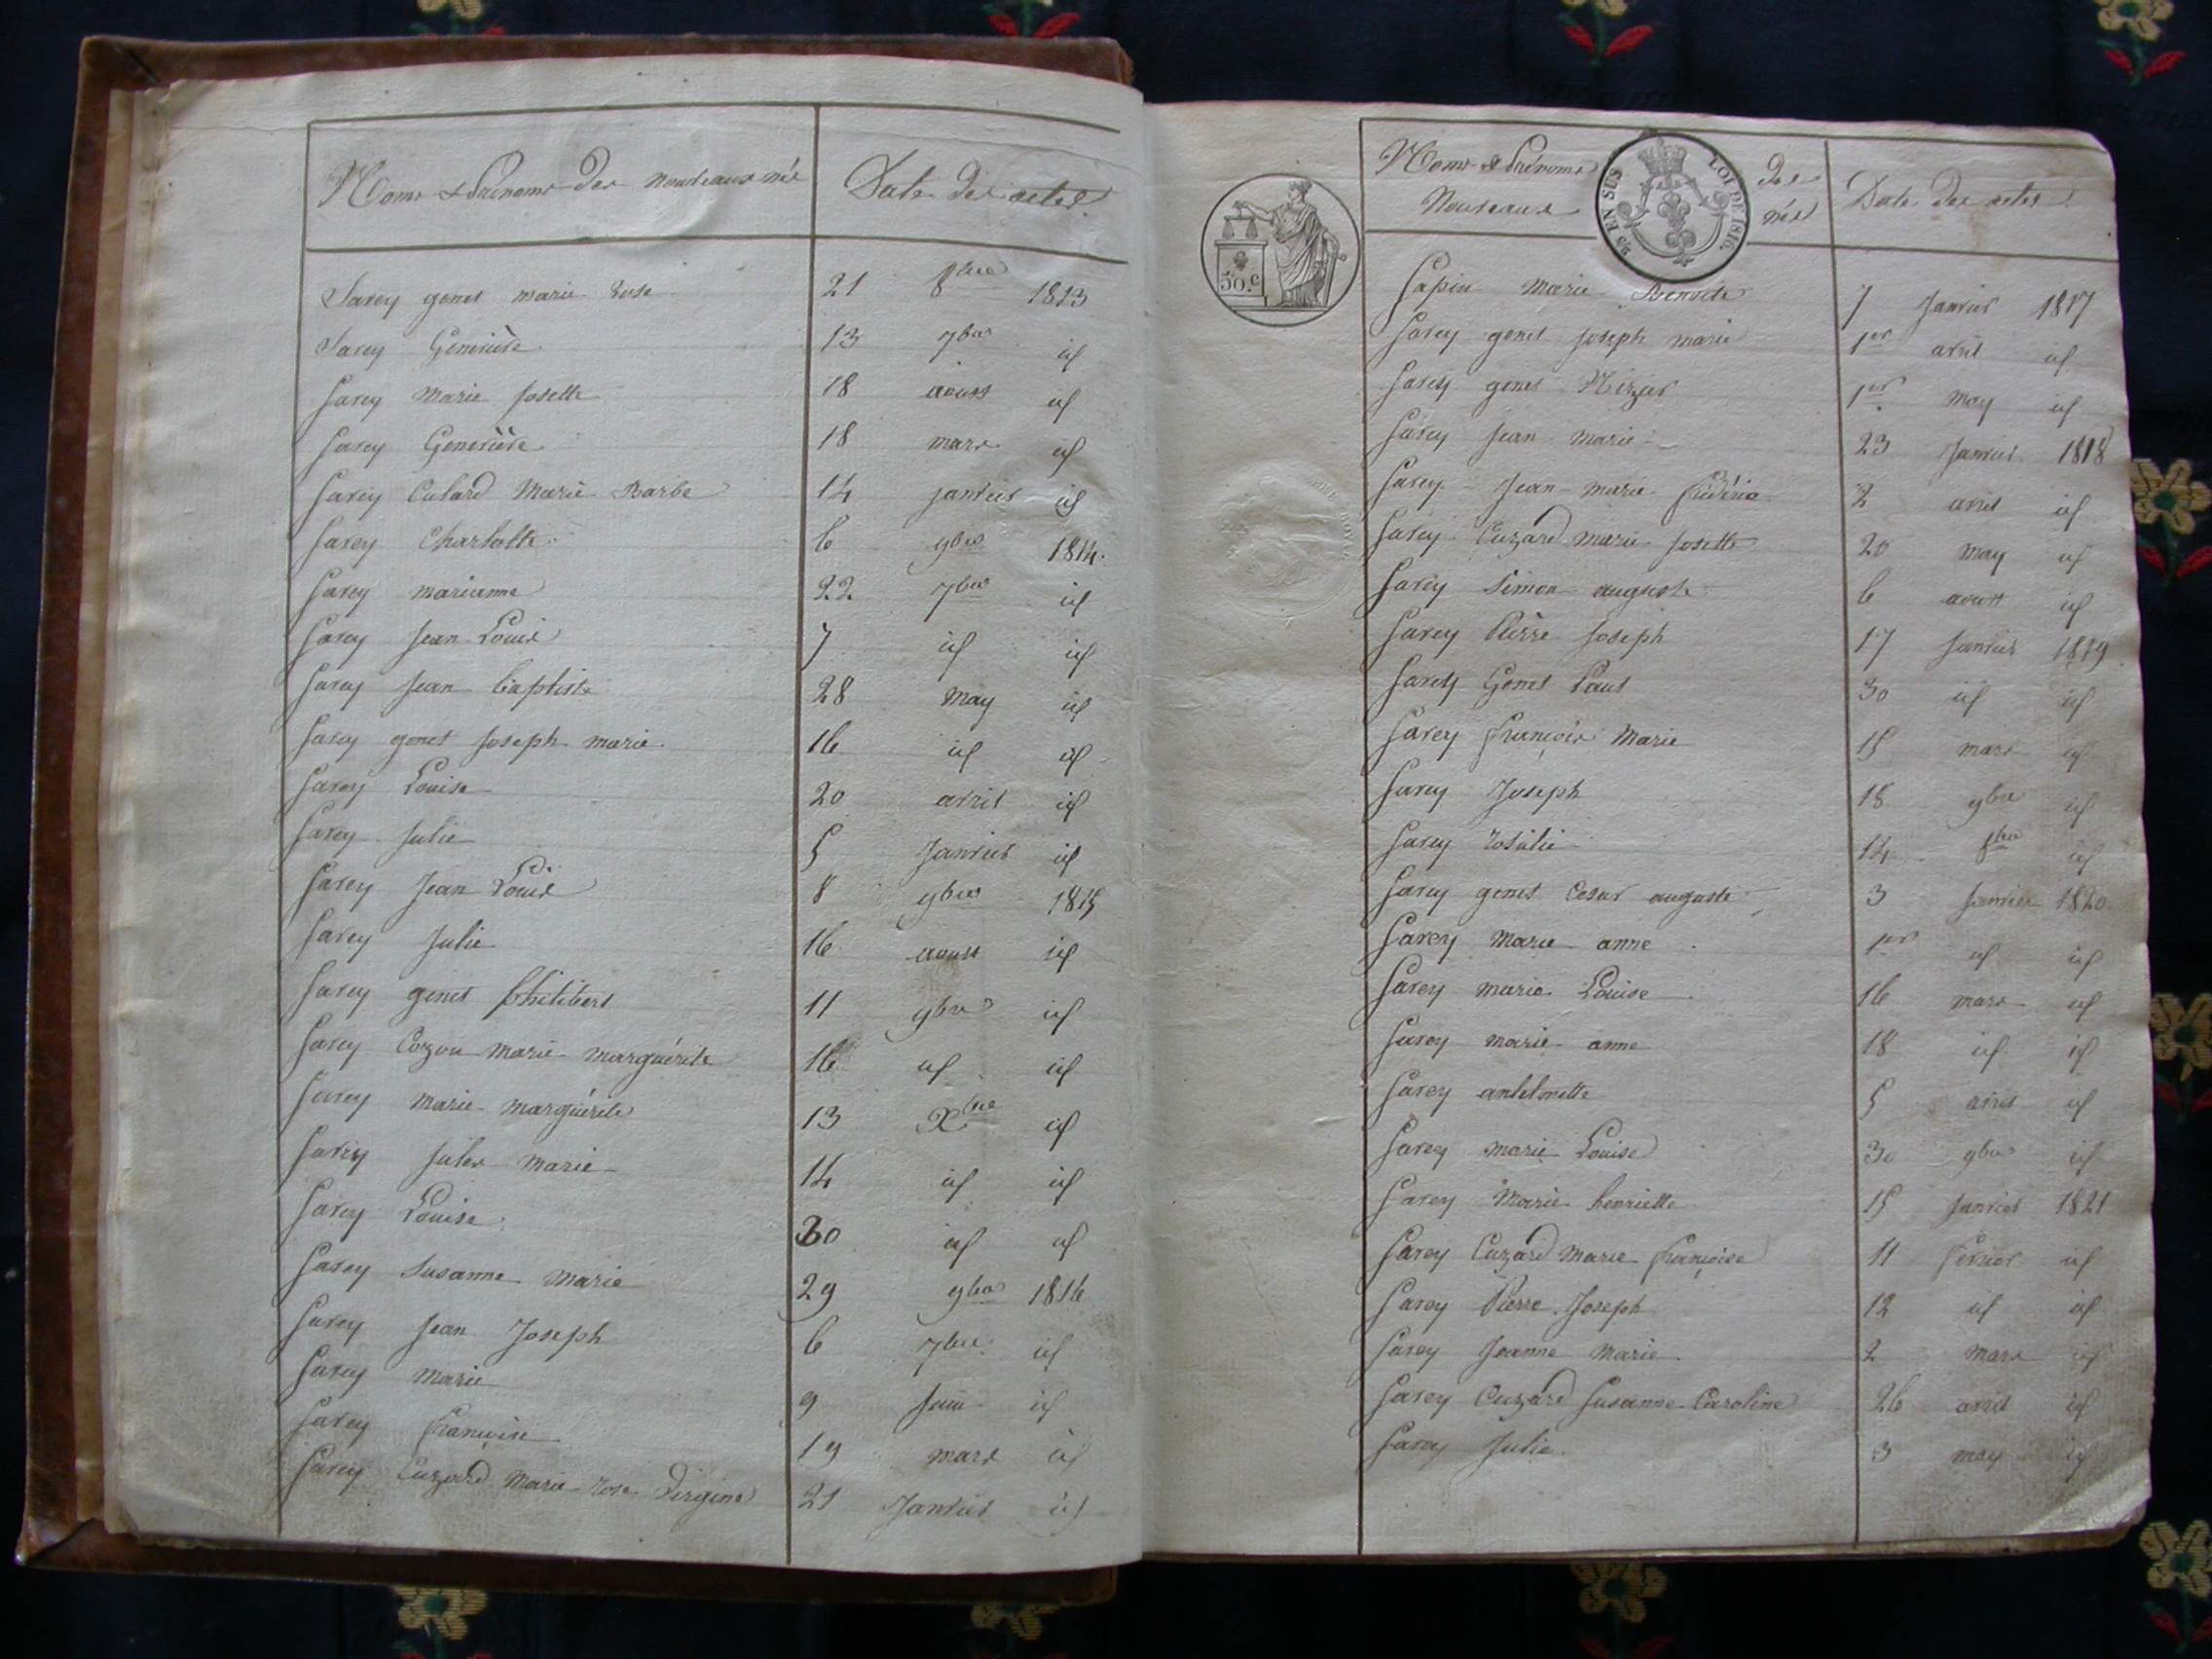 Noms & Prénoms des nouveaux nés Date des actes
Savey genet marie rose 21 8bre 1813
Savey Geneviève 13 7bre id
Savey marie josette 18 aoust id
Savey Geneviève 18 mars id
Savey Culard Marie Barbe 14 janvier id
Savey Charlotte 6 9bre 1814.
Savey marianne 22 7bre id
Savey Jean Louis 7 id id
Savey Jean baptiste 28 may id
Savey genet joseph marie 16 id id
Savey Louise 20 avril id
Savey Julie 5 Janvier id
Savey Jean Louis 8 9bre 1815
Savey Julie 16 aoust id
Savey genet philibert 11 9bre id
Savey Cozon marie marguérite 16 id id
Savey marie marguérite 13 Xbre id
Savey jules marie 14 id id
Savey Louise 30 id id
Savey Susanne marie 29 9bre 1816
Savey Jean Joseph 6 7bre id
Savey marie 9 juin id
Savey françoise 19 mars id
Savey Cuzard Marie rose Virgine 21 Janvier id
Noms & Prénoms des
Nouveaux nés Date des actes
23 EN SUS LOI DE 1816.
50.c
Sapin Marie Benoite 7 Janvier 1817
Savey genet joseph marie 1er avril id
Savey genet Nizier 1er may id
Savey Jean marie 23 Janvier 1818
Savey Jean-marie frédéric 2 avril id
Savey Cuzard marie josette 20 may id
Savey Simon auguste 6 aoust id
Savey Pierre Joseph 17 Janvier 1819
Savey Genet Paul 30 id id
Savey françois Marie 15 mars id
Savey Joseph 18 9bre id
Savey rosalie 14 8bre id
Savey genet Cesar auguste 3 Janvier 1820
Savey Marie anne 1er id id
Savey marie Louise 16 mars id
Savey marie anne 18 id id
Savey antelmette 5 avril id
Savey marie Louise 30 9bre id
Savey Marie henriette 15 Janvier 1821
Savey Cuzard Marie françoise 11 fevrier id
Savey Pierre Joseph 12 id id
Savey Jeanne Marie 2 mars id
Savey Cuzard Susanne Caroline 26 avril id
Savey Julie. 3 may id